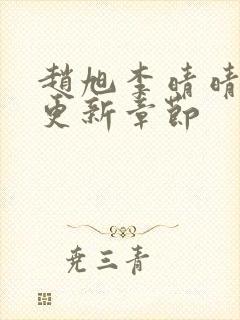 趙旭李晴晴
更新章節
尭三青